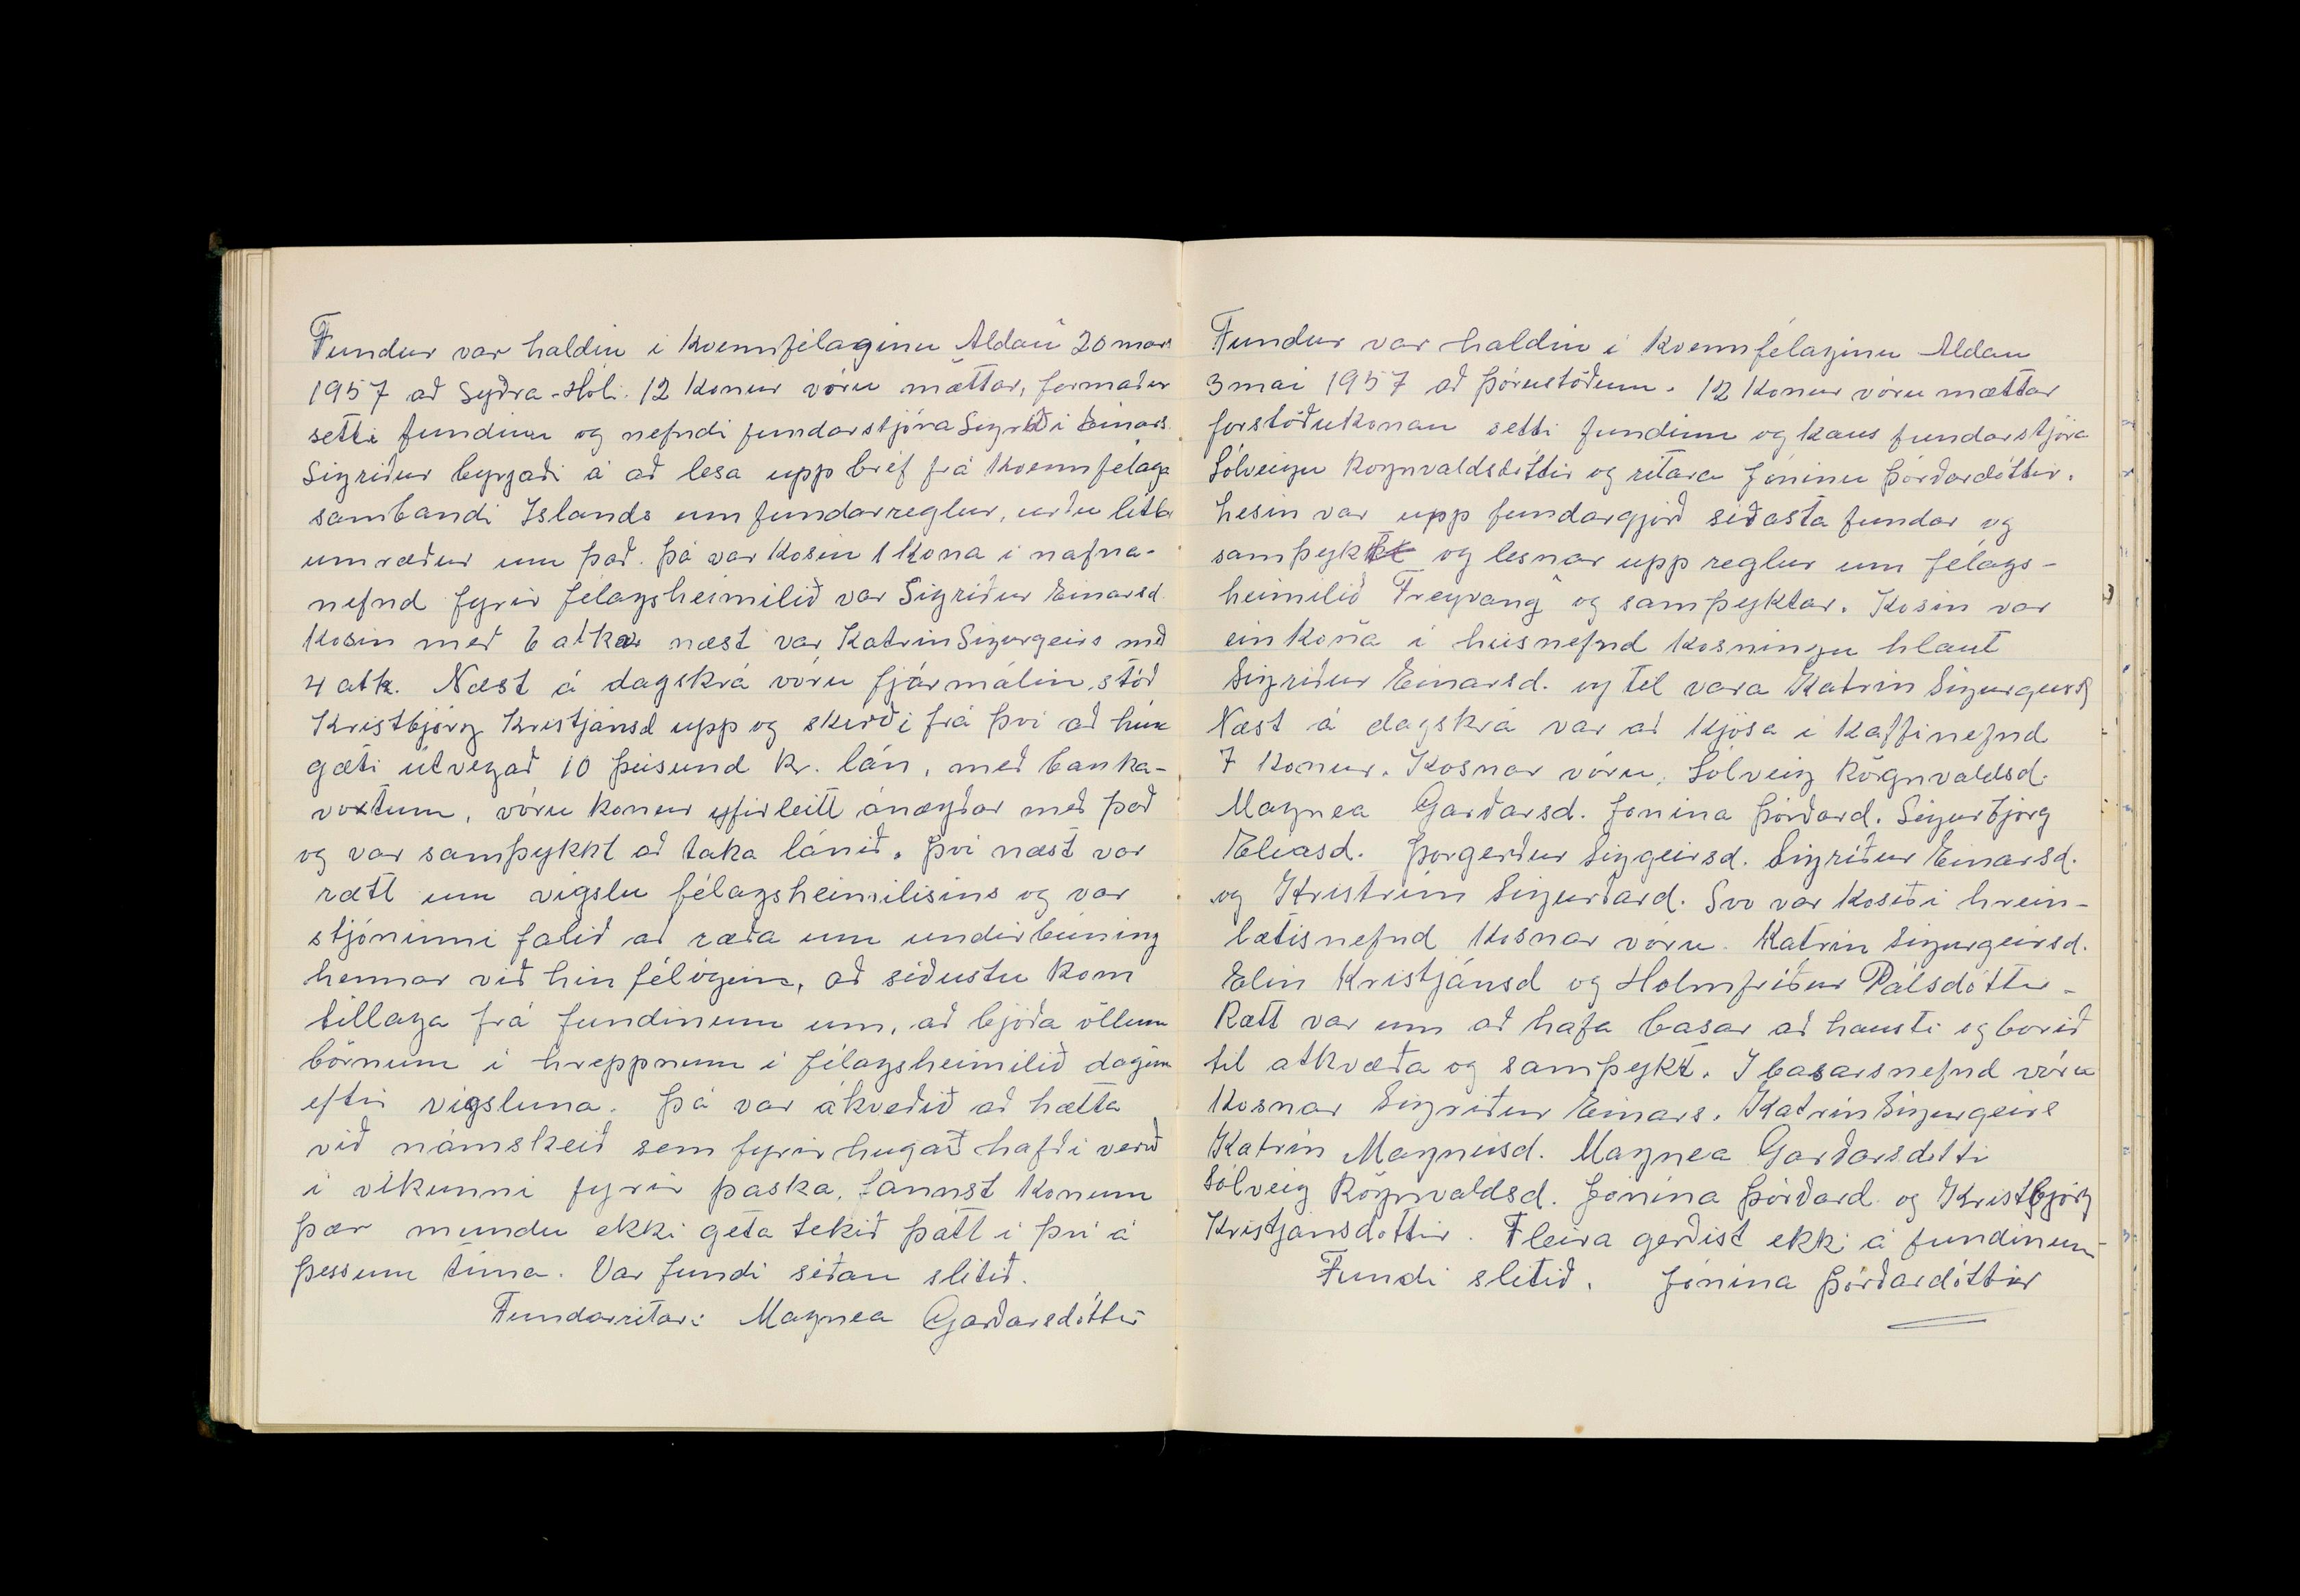 Fundur var haldin í kvennfélaginu Aldan 20 mars
1957 að Syðra-Hóli. 12 konur vóru mættar, formaður
setti fundinn og nefndi fundarstjóra Sigríði Einars.
Sigríður byrjaði á að lesa upp bréf frá Kvennfélaga
sambandi Islands um fundarreglur, urðu litlar
umræður um það. Þá var kosin 1 kona i nafna-
nefnd fyrir félagsheimilið var Sigríður Einarsd.
kosin með 6 atkv næst var Katrin Sigurgeirs með
4 atk. Næst á dagskrá vóru fjármálin, stóð
Kristbjörg Kristjánsd upp og skírði frá þvi að hún
gæti útvegað 10 þúsund kr. lán, með banka-
voxtum, vóru konur yfirleitt ánægðar með það
og var samþykkt að taka lánið. Þvi næst var
rætt um vigslu félagsheimilisins og var
stjórninni falið að ræða um undirbúning
hennar við hin félögin, að siðustu kom
tillaga frá fundinum um, að bjóða öllum
börnum i hreppnum i félagsheimilið daginn
eftir vigsluna. Þá var ákveðið að hætta
við námskeið sem fyrir hugað hafði verið
i vikunni fyrir páska, fannst konum
þær mundu ekki geta tekið þátt i þvi á
þessum tima. Var fundi siðan slitið.
Fundarritari Magnea Garðarsdóttir
Fundur var haldin i kvennfélaginu Aldan
3 mai 1957 að Þórustöðum. 12 konur vóru mættar
forstöðukonan setti fundinn og kaus fundarstjóra
Sólveigu Rögnvaldsdóttir og ritara Jóninu Þórðardóttir.
Lesin var upp fundargjörð siðasta fundar og
samþykt og lesnar upp reglur um félags-
heimilið Freyvang og samþyktar. Kosin var
ein kona i húsnefnd kosningu hlaut
Sigriður Einarsd. og til vara Katrin Sigurgeirsd
Næst á dagskrá var að kjósa i kaffinefnd
7 konur. Kosnar vóru. Sólveig Rögnvaldsd.
Magnea Garðarsd. Jónina Þórðard. Sigurbjörg
Eliasd. Þorgerður Siggeirsd. Sigriður Einarsd.
og Kristrún Sigurðard. Svo var kosið i hrein-
lætisnefnd kosnar vóru. Katrin Sigurgeirsd.
Elin Kristjánsd og Holmfríður Pálsdóttir-
Rætt var um að hafa basar að hausti og borið
til atkvæða og samþykt. I basarsnefnd vóru
kosnar Sigriður Einars. Katrin Sigurgeirs
Katrin Magnúsd. Magnea Garðarsdótti
Sólveig Rögnvaldsd. Jónina Þórðard. og Kristbjörg
Kristjánsdottir. Fleira gerðist ekki á fundinum
Fundi slitið. Jónína Þórðardóttir